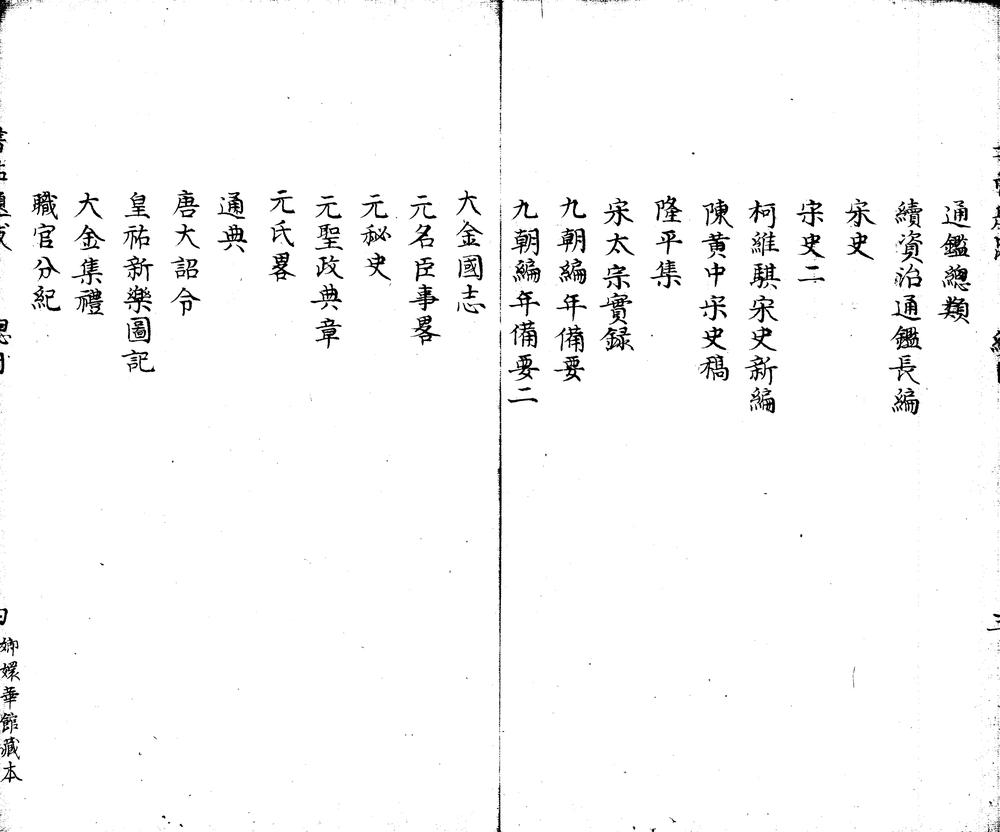 通鑑總類
續資治通鑑長編
宋史
宋史二
柯維騏宋史新編
陳黄中宋史稿
隆平集
宋太宗實録
九朝編年備要
九朝編年備要二
大金國志
元名臣事畧
元秘史
元聖政典章
元氏畧
通典
唐大詔令
皇祐新樂圖記
大金集禮
職官分紀
嫏嬛華館藏本